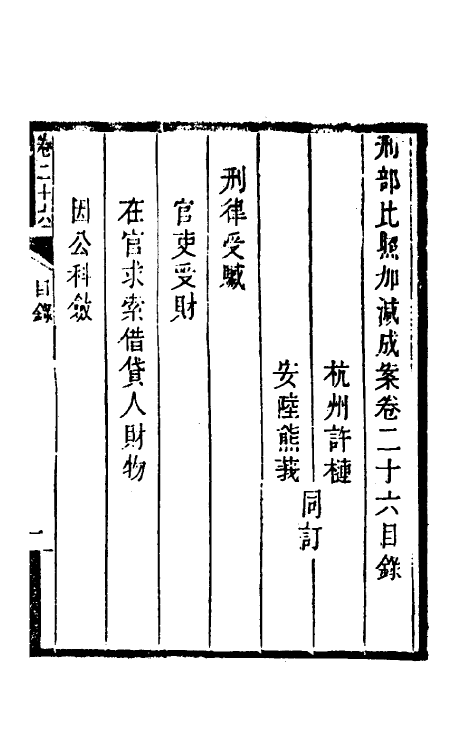 刑部比照加減成案卷二十六目錄
杭州許槤
安陸熊莪
同訂
刑律受贓
官吏受財
在官求索借貸人財物
因公科斂
卷二十六
目錄
一